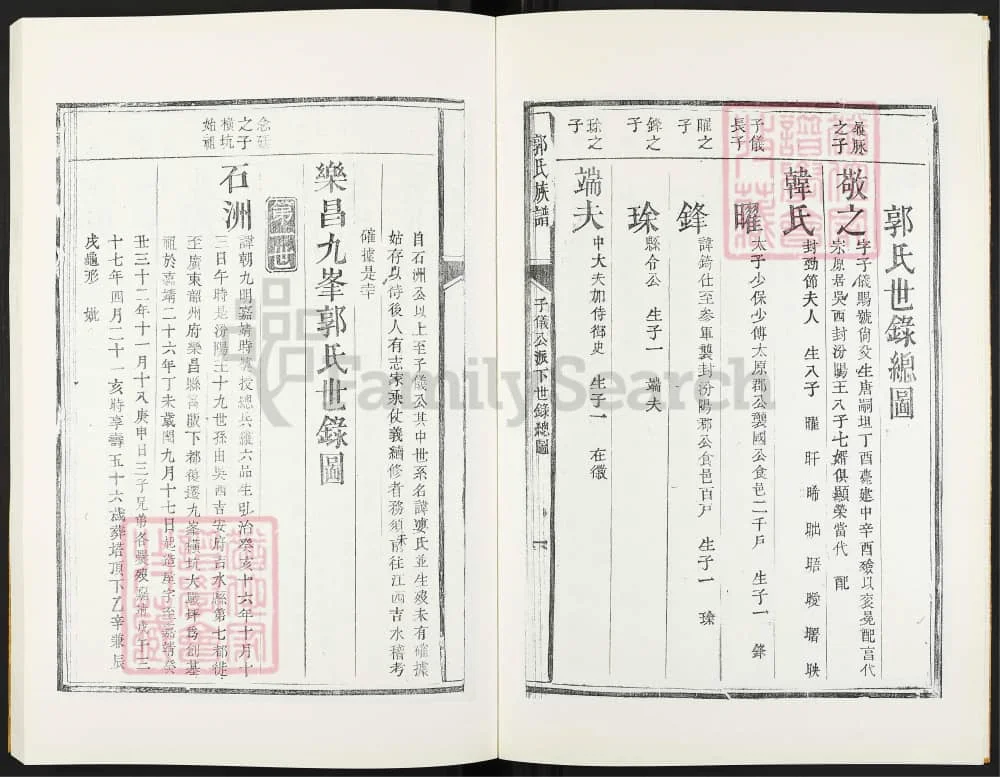 郭氏世錄總圖
之子
敬之
字子儀賜號尙父生唐嗣垣丁酉薨建中辛酉殮以袞冕配享代
宋原居吳西封汾陽王八子七婿俱顯榮當代 配
韓氏
封勁節夫人 生八子 曜 旰 晞 昢 晤 曖 曙 映
子儀
長子
曜
太子少保少傅太原郡公襲國公食邑二千戶 生子一 鋒
曜之
子
鋒
諱錡仕至參軍襲封汾陽郡公食邑百戶 生子一 瑹
鋒之
子
瑹
縣令公 生子一 端夫
瑹之
子
端夫
中大夫加侍御史 生子一 在徽
郭氏族譜
子儀公派下世錄總圖
自石洲公以上至子儀公其中世系名諱妻氏並生歿未有確據
姑存以待後人有志家乘仗義續修者務須前往江西吉水稽考
確據是幸
樂昌九峯郭氏世錄圖
念廷
之子
橫坑
始祖
石洲
諱朝九明嘉靖時 授總兵 六品生弘治癸亥十六年十月十
三日午時是汾陽王十九世孫由吳西吉安府吉水縣第七都徙
至廣東韶州府樂昌縣 下都後遷九峯橫坑大 坪爲創基
祖於嘉靖二十六年丁未歲閏九月十七日起造屋宇至嘉靖癸
丑三十二年十一月十八庚申日三子兄弟各爨 戊午三
十七年四月二十一亥時享壽五十六歲葬塔頂下乙辛兼辰
戌龜形 妣
FamilySearch